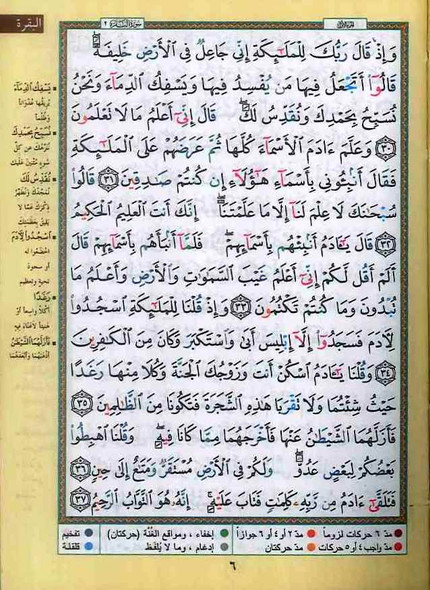 الجزء الأول
سورة البقرة ٢
البقرة
وَإِذْ قَالَ رَبُّكَ لِلْمَلَٰٓئِكَةِ إِنِّى جَاعِلٌ فِى ٱلْأَرْضِ خَلِيفَةً ۖ
قَالُوٓا۟ أَتَجْعَلُ فِيهَا مَن يُفْسِدُ فِيهَا وَيَسْفِكُ ٱلدِّمَآءَ وَنَحْنُ
نُسَبِّحُ بِحَمْدِكَ وَنُقَدِّسُ لَكَ ۖ قَالَ إِنِّىٓ أَعْلَمُ مَا لَا تَعْلَمُونَ
٣٠ وَعَلَّمَ ءَادَمَ ٱلْأَسْمَآءَ كُلَّهَا ثُمَّ عَرَضَهُمْ عَلَى ٱلْمَلَٰٓئِكَةِ
فَقَالَ أَنۢبِـُٔونِى بِأَسْمَآءِ هَٰٓؤُلَآءِ إِن كُنتُمْ صَٰدِقِينَ ٣١ قَالُوا۟
سُبْحَٰنَكَ لَا عِلْمَ لَنَآ إِلَّا مَا عَلَّمْتَنَآ ۖ إِنَّكَ أَنتَ ٱلْعَلِيمُ ٱلْحَكِيمُ
٣٢ قَالَ يَٰٓـَٔادَمُ أَنۢبِئْهُم بِأَسْمَآئِهِمْ ۖ فَلَمَّآ أَنۢبَأَهُم بِأَسْمَآئِهِمْ قَالَ
أَلَمْ أَقُل لَّكُمْ إِنِّىٓ أَعْلَمُ غَيْبَ ٱلسَّمَٰوَٰتِ وَٱلْأَرْضِ وَأَعْلَمُ مَا
تُبْدُونَ وَمَا كُنتُمْ تَكْتُمُونَ ٣٣ وَإِذْ قُلْنَا لِلْمَلَٰٓئِكَةِ ٱسْجُدُوا۟
لِءَادَمَ فَسَجَدُوٓا۟ إِلَّآ إِبْلِيسَ أَبَىٰ وَٱسْتَكْبَرَ وَكَانَ مِنَ ٱلْكَٰفِرِينَ
٣٤ وَقُلْنَا يَٰٓـَٔادَمُ ٱسْكُنْ أَنتَ وَزَوْجُكَ ٱلْجَنَّةَ وَكُلَا مِنْهَا رَغَدًا
حَيْثُ شِئْتُمَا وَلَا تَقْرَبَا هَٰذِهِ ٱلشَّجَرَةَ فَتَكُونَا مِنَ ٱلظَّٰلِمِينَ ٣٥
فَأَزَلَّهُمَا ٱلشَّيْطَٰنُ عَنْهَا فَأَخْرَجَهُمَا مِمَّا كَانَا فِيهِ ۖ وَقُلْنَا ٱهْبِطُوا۟
بَعْضُكُمْ لِبَعْضٍ عَدُوٌّ ۖ وَلَكُمْ فِى ٱلْأَرْضِ مُسْتَقَرٌّ وَمَتَٰعٌ إِلَىٰ حِينٍ ٣٦
فَتَلَقَّىٰٓ ءَادَمُ مِن رَّبِّهِۦ كَلِمَٰتٍ فَتَابَ عَلَيْهِ ۚ إِنَّهُۥ هُوَ ٱلتَّوَّابُ ٱلرَّحِيمُ ٣٧
يَسْفِكُ الدِّمَاءَ
يريقها عدواناً
وظلماً
نُسَبِّحُ بِحَمْدِكَ
ننزهك عن كل
سوء مثنين عليك
نُقَدِّسُ لَكَ
نمجدك ونطهر
ذكرك عما لا
يليق بعظمتك
اسْجُدُوا لِآدَمَ
اخضعوا له
أو سجود
تحية وتعظيم
رَغَدًا
أكلاً واسعاً أو
هنيئاً لا عناء فيه
فَأَزَلَّهُمَا الشَّيْطَانُ
أذهبهما وأبعدهما
مدّ ٦ حركات لزوماً مدّ ٢ أو ٤ أو ٦ جوازاً إخفاء، ومواقع الغُنّة (حركتان) تفخيم
مدّ واجب ٤ أو ٥ حركات مدّ حركتان إدغام، وما لا يُلفَظ قلقلة
٦